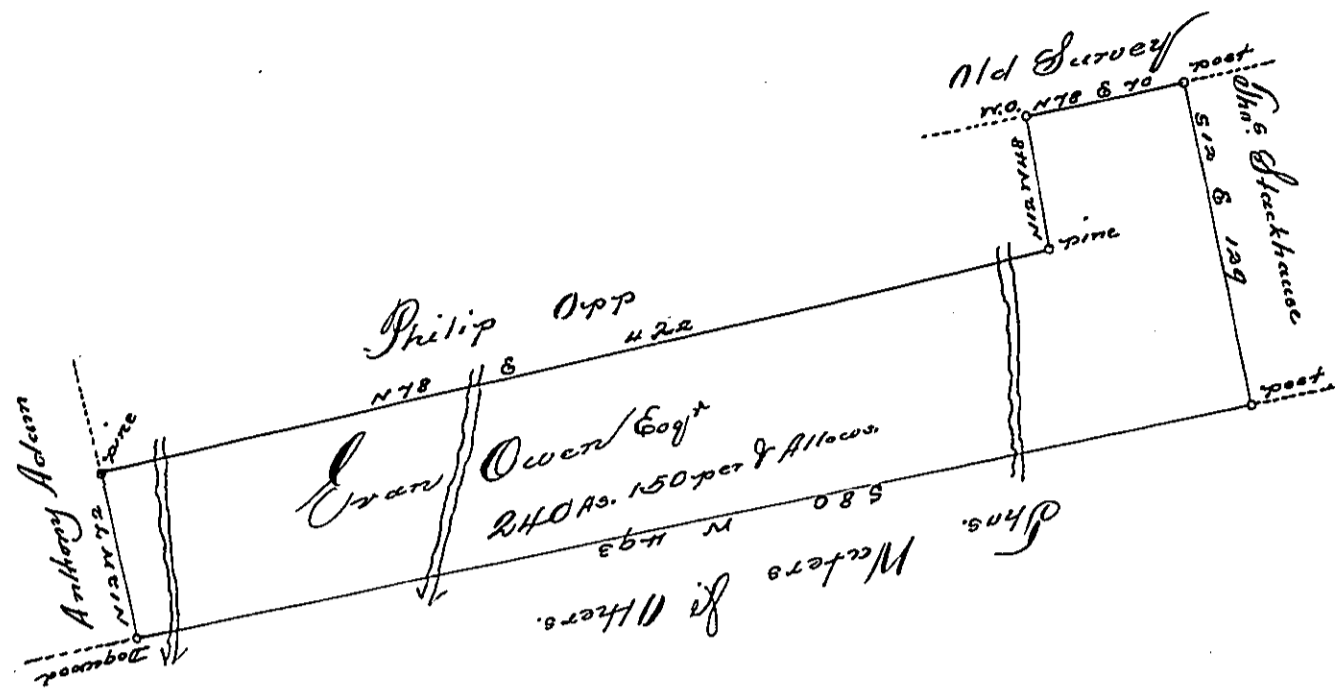 Old Survey
W.O. N78 E 70 post
Thos. Stackhouse
S12 E 129
N12 W 48
pine
Philip Opp
N78 E 422
Anthony Adam
pine
N12 W 72
Evan Owen Esqr
240 As. 150 per & Allows.
S80 W 493
Thos. Waters & Others.
Dogwood
post